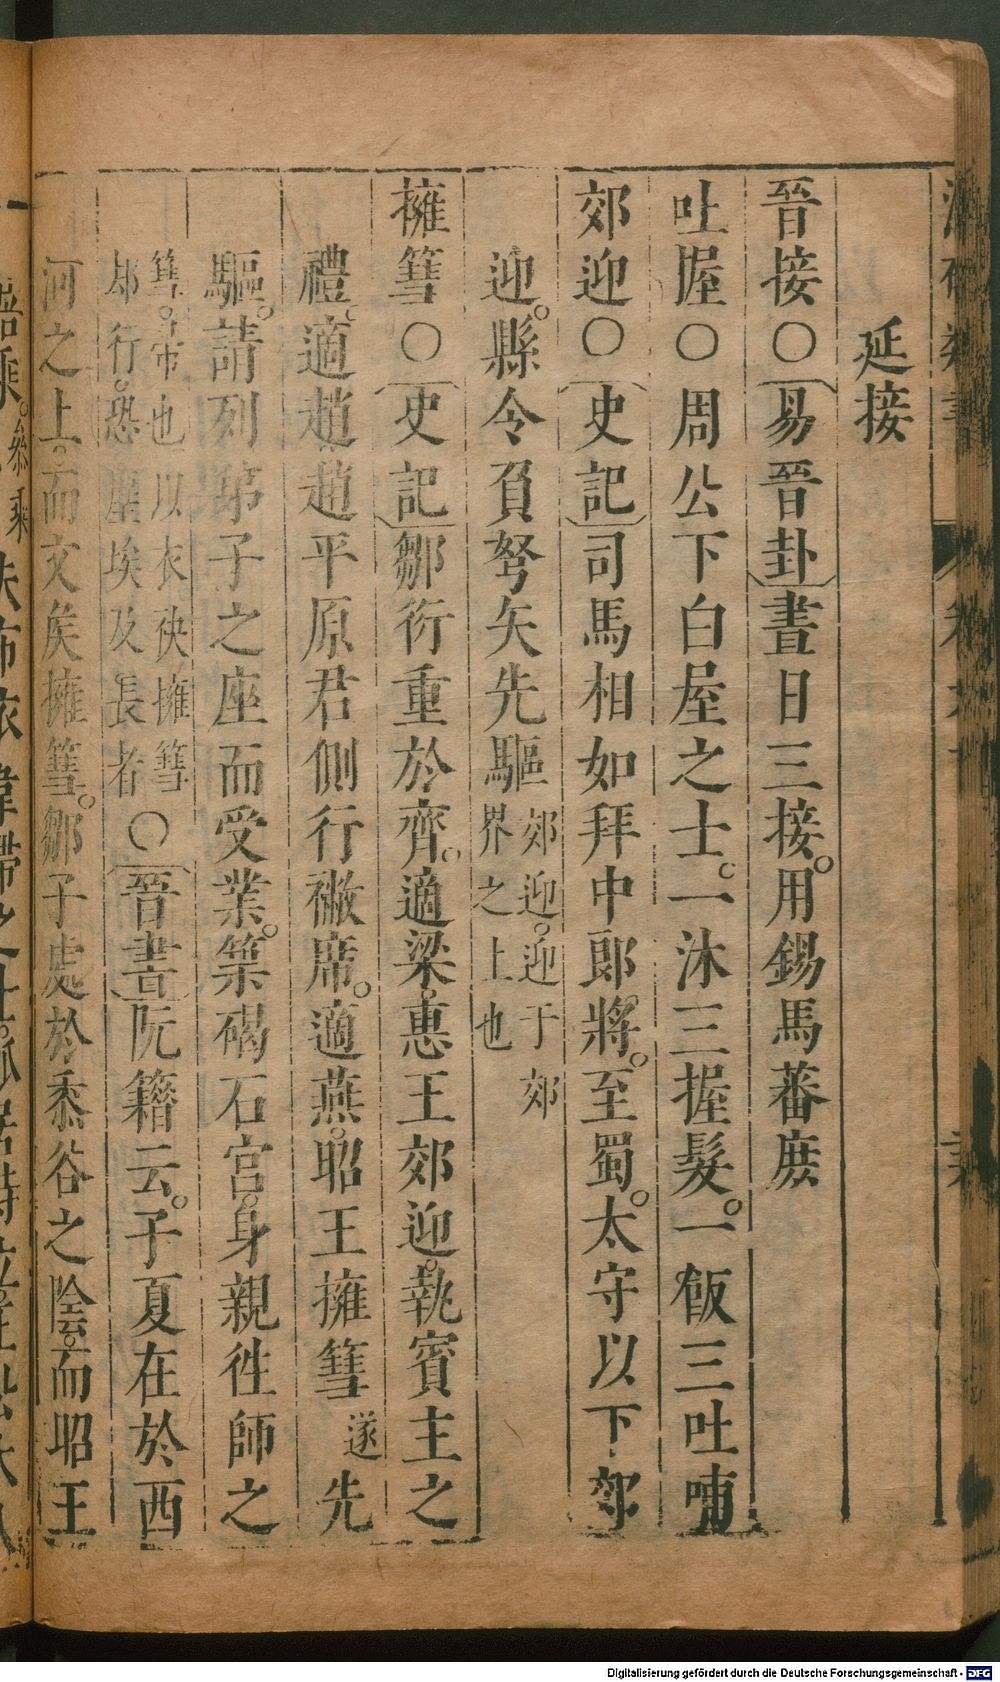 延接
晉接〇易晉卦晝日三接。用錫馬蕃庶
吐握〇周公下白屋之士。一沐三握髮。一飯三吐哺
郊迎〇史記司馬相如拜中郎將。至蜀。太守以下郊
迎。縣令負弩矢先驅郊迎。迎于郊界之上也
擁篲〇史記鄒衍重於齊。適梁。惠王郊迎。執賓主之
禮。適趙。趙平原君側行襒席。適燕。昭王擁篲遂先
驅。請列弟子之座而受業。築碣石宮。身親徃師之
篲。帚也以衣袂擁篲却行。恐塵埃及長者〇晉書阮籍云。子夏在於西
河之上。而文矦擁篲。鄒子處於黍谷之陰。而昭王
Digitalisierung gefördert durch die Deutsche Forschungsgemeinschaft - DFG